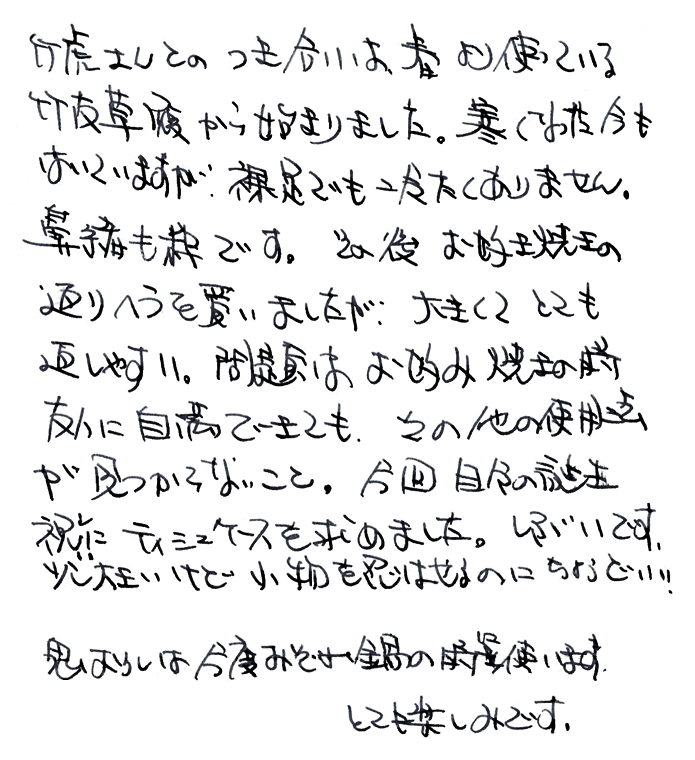 竹虎さんとのつき合いは、春より使っている
竹皮草履から始まりました。寒くなった今も
はいていますが、裸足でも冷たくありません。
鼻緒も粋です。その後 お好き焼きの
返りヘラを買いましたが、大きくて とても
返しやすい。問題は、お好み焼きの時
友人に自慢できても、その他の使用法
が見つからないこと。今回 自分の誕生
祝いにティシュケースを求めました。しぶいです。
少し大きいけど 小物を忍ばせるのにちょうどいい!!
鬼おろしは今度みぞれ鍋の時使います。
とても楽しみです。